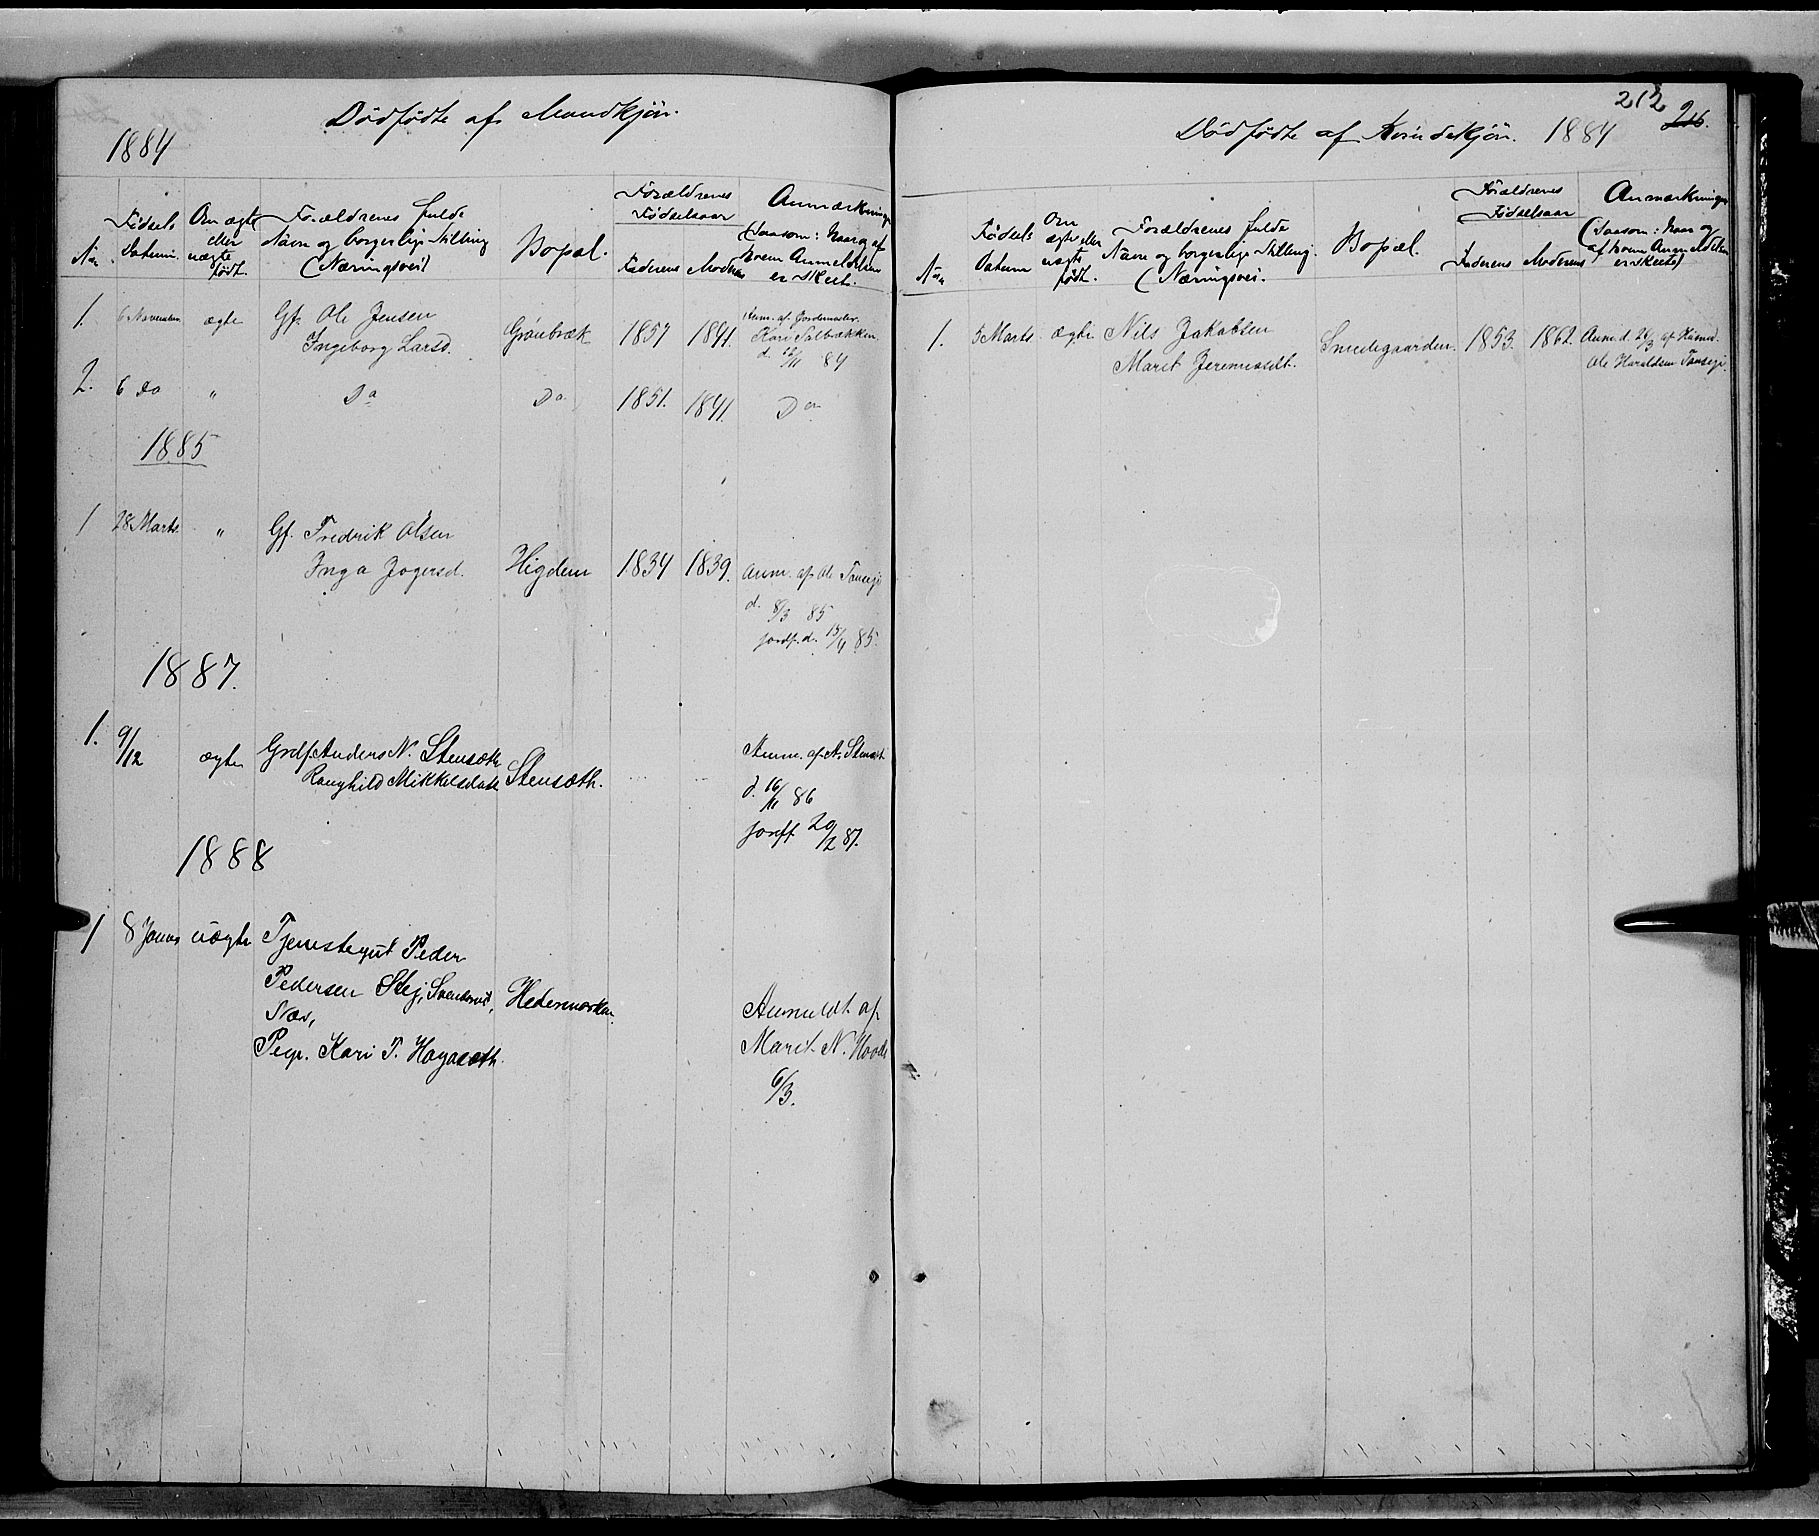 Dødfødte af Mandkjøn.
1884
No
Fødsels
Datum.
Om ægte
eller
uægte
født.
Forældrenes fulde
Navn og borgerlige Stilling
(Næringsvei)
Bopæl.
Forældrenes
Fødselsaar
Faderens Moderens
Anmærkninger
(saasom: Naar og af
hvem Anmeldelsen
er skeet.
1. 6 November ægte Gf. Ole Jensen
Ingeborg Larsd. Grønbræk 1857 1841.
Anm. af Jordemoder
Kari Salbakken
d. 12/11 84
2. 6 Do " Do Do 1851. 1841. Do
1885
1 28 Marts. " Gf. Fredrik Olsen
Inga Jogersd. Higdem 1834 1839. Anm. af Ole Tansegi
d. 8/3 85
jordf. d. 15/4 85.
1887.
1. 9/12 ægte Grdf. Anders N. Stensæth
Ranghild Mikkelsdatt Stensæth.
Anm. af A. Stensæt
d. 16/11 86
jordf. 20/2 87.
1888
1 8 uægte Tjenstegut Peder
Pedersen
Hedemarken.
Pige. Kari T. Hagasæth.
Anmeldt af
Marit N.
6/3.
212
216.
Dødfødte af Kvindekjøn. 1884
No
Fødsels
Datum
Om
ægte eller
uægte
født.
Forældrenes fulde
Navn og borgerlige Stilling.
(Næringsvei.
Bopæl.
Forældrenes
Fødselsaar
Faderens Moderens
Anmærkninger
(saasom: Naar og
af hvem Anmeldelsen
er skeet)
1. 5 Marts ægte Nils Jakobsen
Marit Jeremiasdt. Smedegaarden 1853. 1862.
Anm. d. 24/3 af Husmd.
Ole Haraldsen Tansegi.